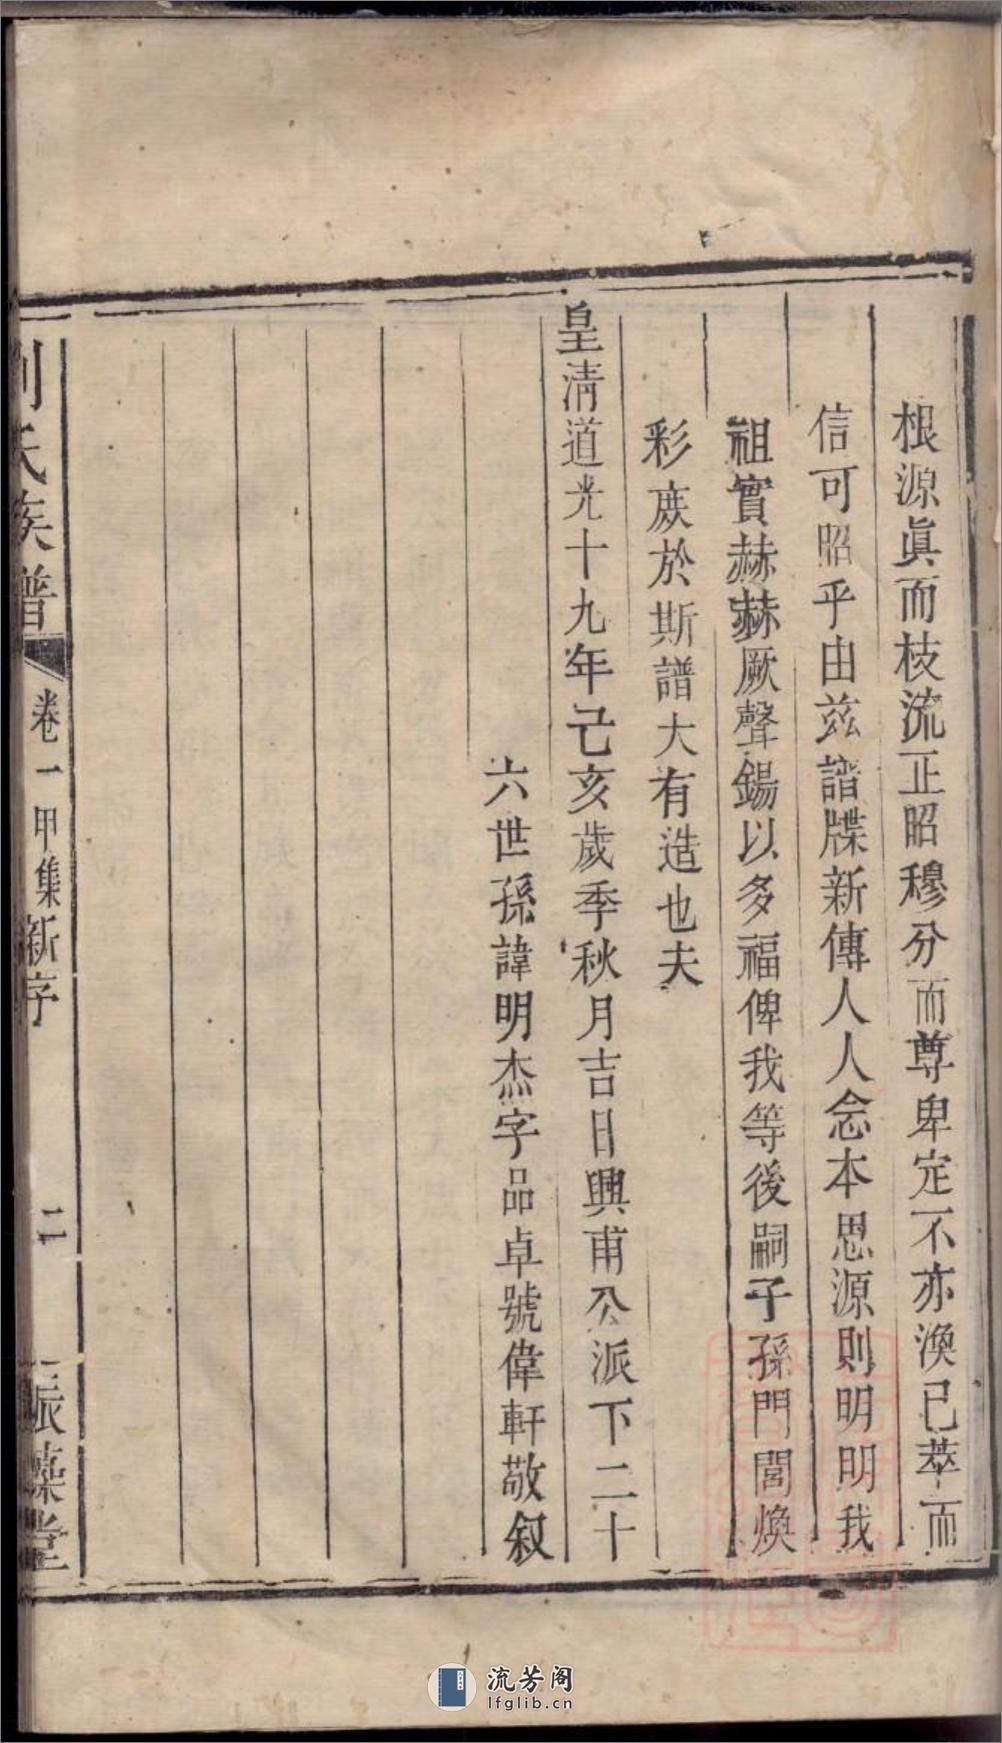 根源眞而枝流正昭穆分而尊卑定不亦渙已萃而
信可昭乎由兹譜牒新傳人人念本思源則明明我
祖實赫赫厥聲錫以多福俾我等後嗣子孫門閭煥
彩庶於斯譜大有造也夫
皇清道光十九年己亥歲季秋月吉日興甫公派下二十
六世孫諱明杰字品卓號偉軒敬叙
劉氏族譜
卷一甲集新序
二
藜堂
流芳阁
lfglib.cn